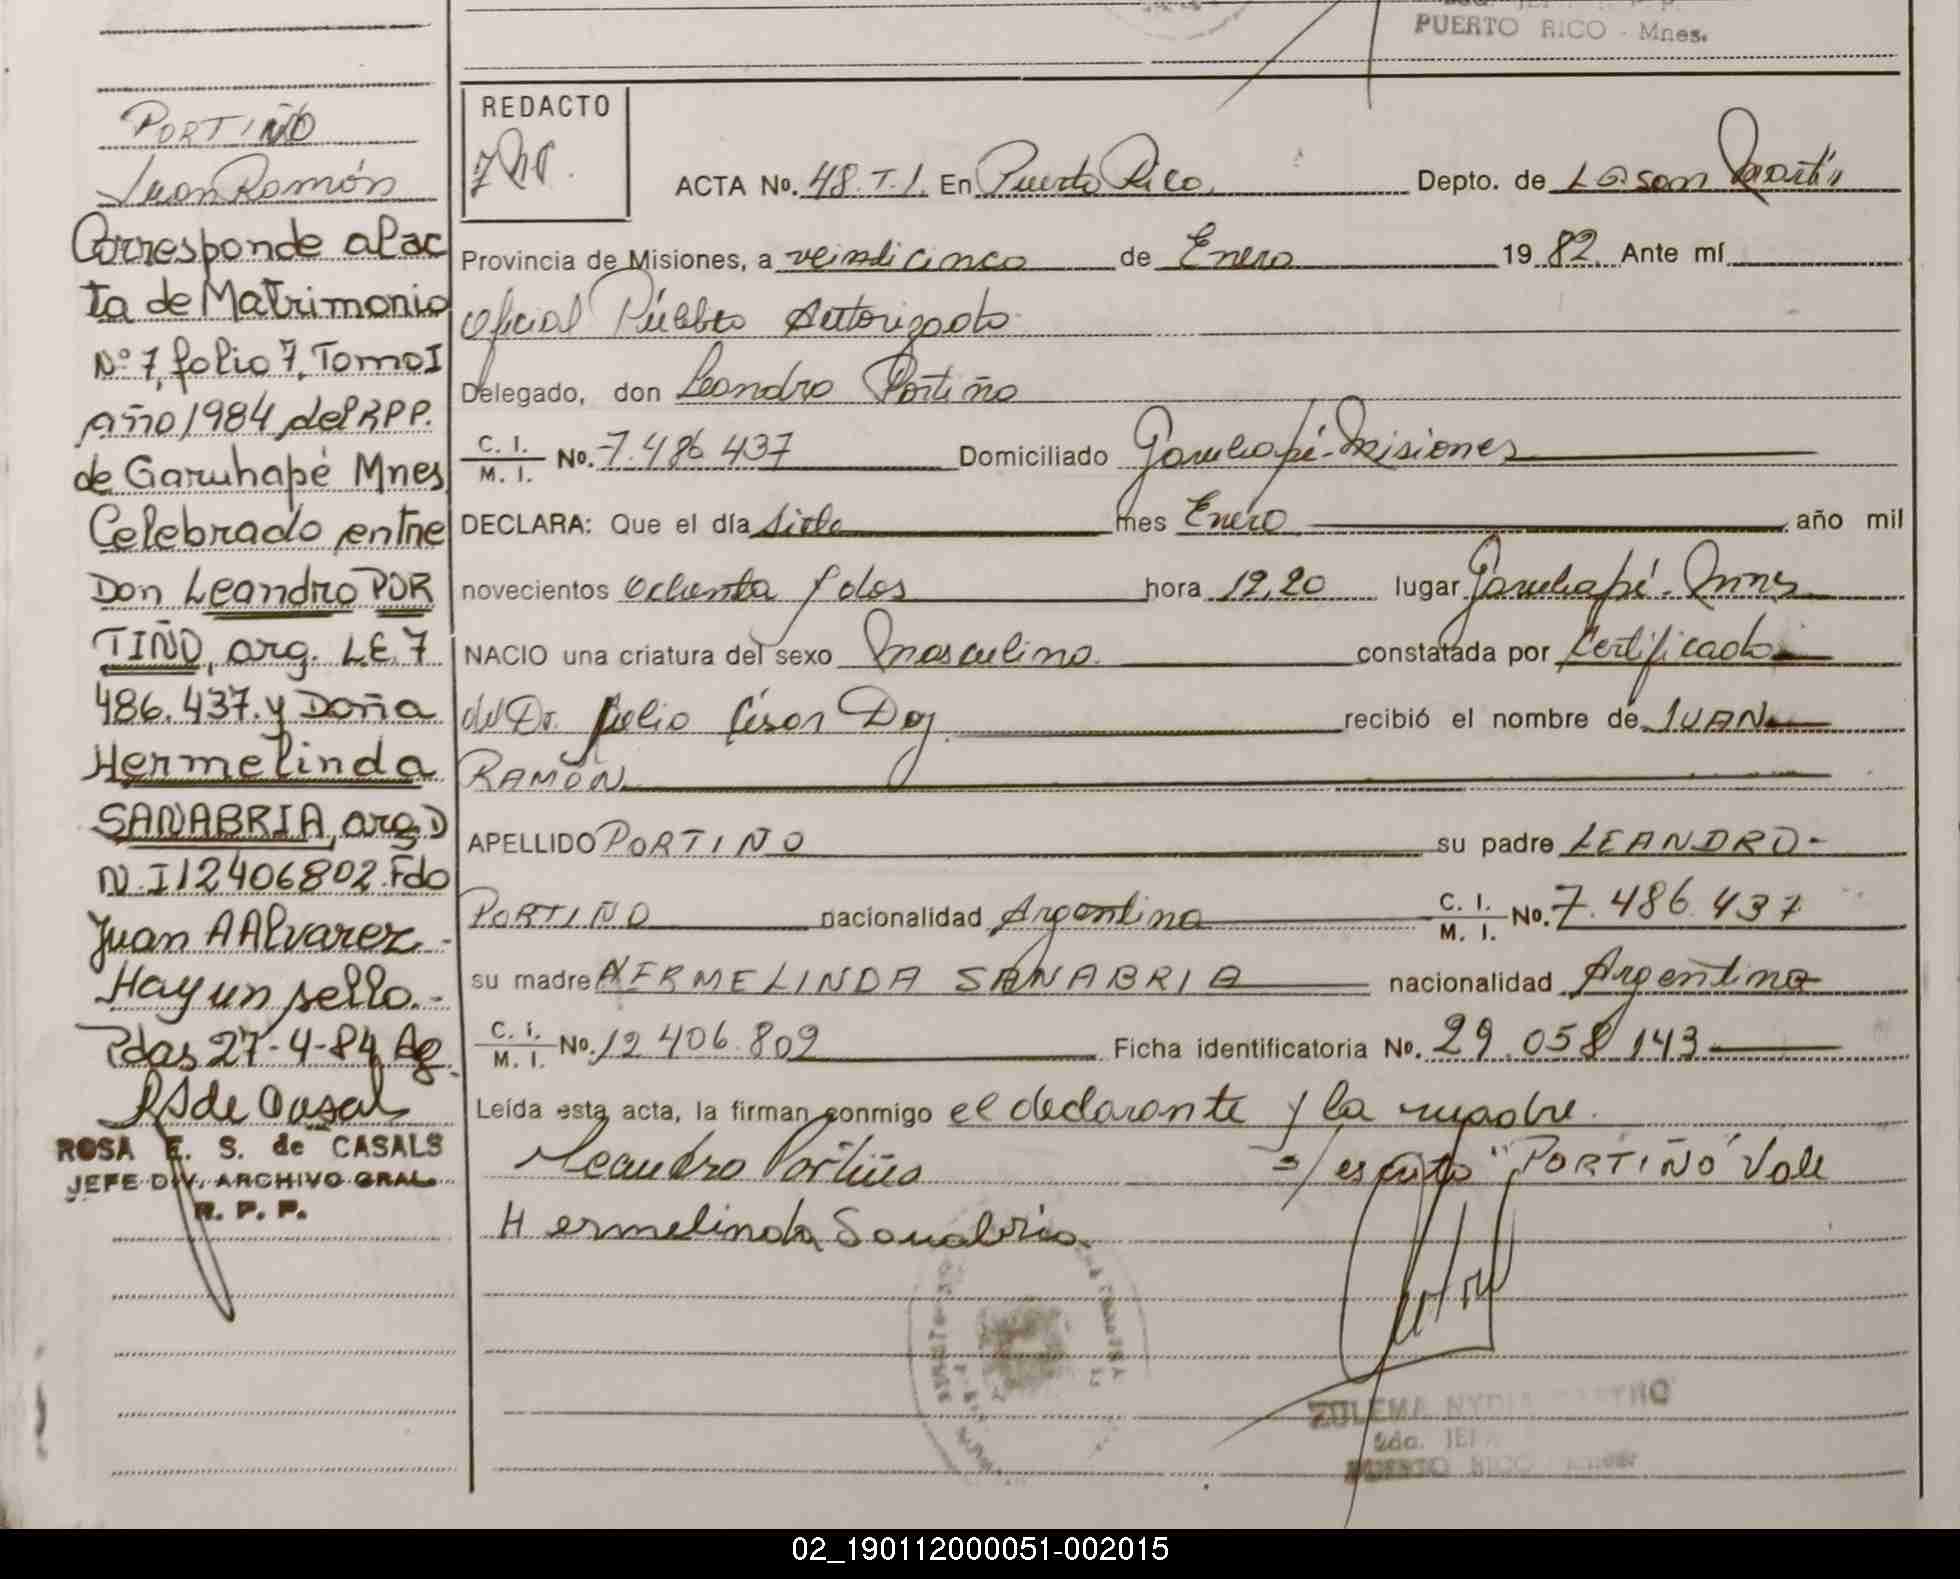 PUERTO RICO - Mnes.
PORTIÑO
Juan Ramón
Corresponde al ac
ta de Matrimonio
Nº 7, folio 7, Tomo I
año 1984 del RPP.
de Garuhapé Mnes
Celebrado entre
Don Leandro POR
TIÑO, arg. LE. 7
486.437. y Doña
Hermelinda
SANABRIA, arg. D
N.I 12406802. Fdo
Juan A Alvarez.-
Hay un sello.-
Pdas 27-4-84 Ag.
RS de Casals
ROSA E. S. de CASALS
JEFE DIV. ARCHIVO GRAL.
R. P. P.
REDACTO
ACTA No. 48. T. I. En Puerto Rico. Depto. de Lib. San Martín
Provincia de Misiones, a veindicinco de Enero 1982. Ante mí
Oficial Público Autorizado
Delegado, don Leandro Portiño
C. I. / M. I. No. 7.486 437 Domiciliado Garuhapé-Misiones
DECLARA: Que el día siete mes Enero año mil
novecientos ochenta y dos hora 12,20 lugar Garuhapé. Mnes
NACIO una criatura del sexo Masculino. constatada por Certificado
del Dr. Julio César Doj recibió el nombre de JUAN
RAMÓN
APELLIDO PORTINO su padre LEANDRO-
PORTIÑO nacionalidad Argentina C. I. / M. I. No. 7.486.437
su madre HERMELINDA SANABRIA nacionalidad Argentina
C. I. / M. I. No. 12 406.802 Ficha identificatoria No. 29.058 143
Leída esta acta, la firman conmigo el declarante y la madre.
Leandro Portiño s/ escrito "PORTIÑO" Vale
Hermelinda Sanabria
ZULEMA NYDIA
2da. JEFE
PUERTO RICO
02_190112000051-002015